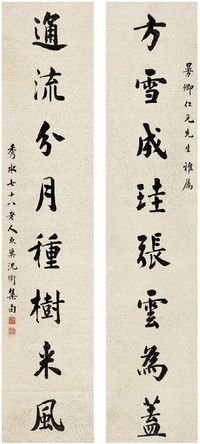 卿仁兄先生雅屬
方雪成珪張雲為蓋
通流分月種樹来風
秀水七十八老人兼巢沈衛集句